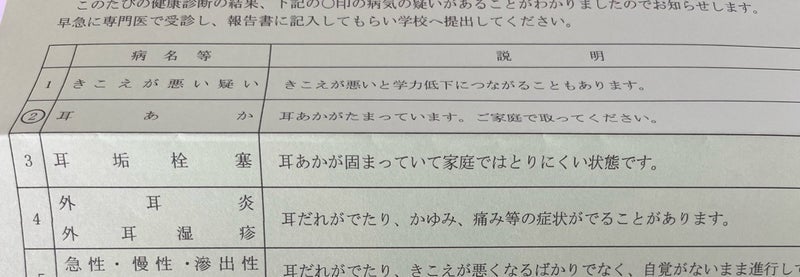 このたびの健康診断の結果、下記の〇印の病気の疑いがあることがわかりましたのでお知らせします。
早急に専門医で受診し、報告書に記入してもらい学校へ提出してください。
病名等 説明
1 きこえが悪い疑い きこえが悪いと学力低下につながることもあります。
② 耳あか 耳あかがたまっています。ご家庭で取ってください。
3 耳垢栓塞 耳あかが固まっていて家庭ではとりにくい状態です。
4 外耳炎
外耳湿疹 耳だれがでたり、かゆみ、痛み等の症状がでることがあります。
急性・慢性・滲出性
5 耳だれがでたり、きこえが悪くなるばかりでなく、自覚がないまま進行し